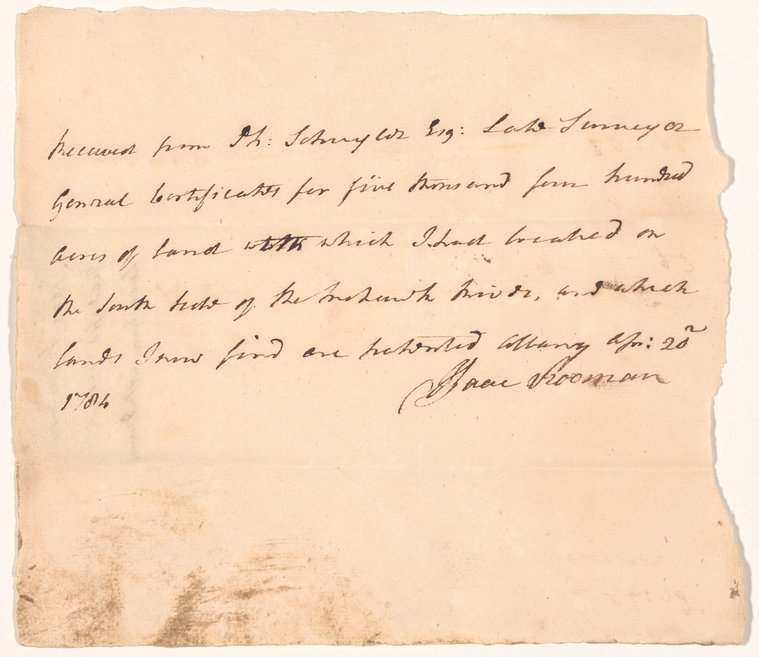 Received from Ph: Schuyler Esq: Late Surveyor
General Certificates for five thousand four hundred
acres of land which I had located on
the South side of the Mohawk River, and which
lands I now find are patented Albany Apr: 20
1784
Isaac Vrooman